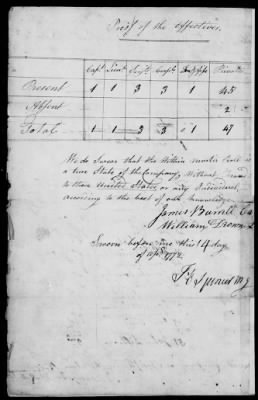 Proof of the Effectives
Capt Lieut Serjts Corpls Privates
Present 1 1 3 3 1 45
Absent 2
Total 1 1 3 3 1 47
We do Swear that the Within muster Roll is
a true State of the Company, Without
to these United States or any Individual
according to the best of our knowledge
James Burnet
William Drown
Sworn before me this 14 day
of